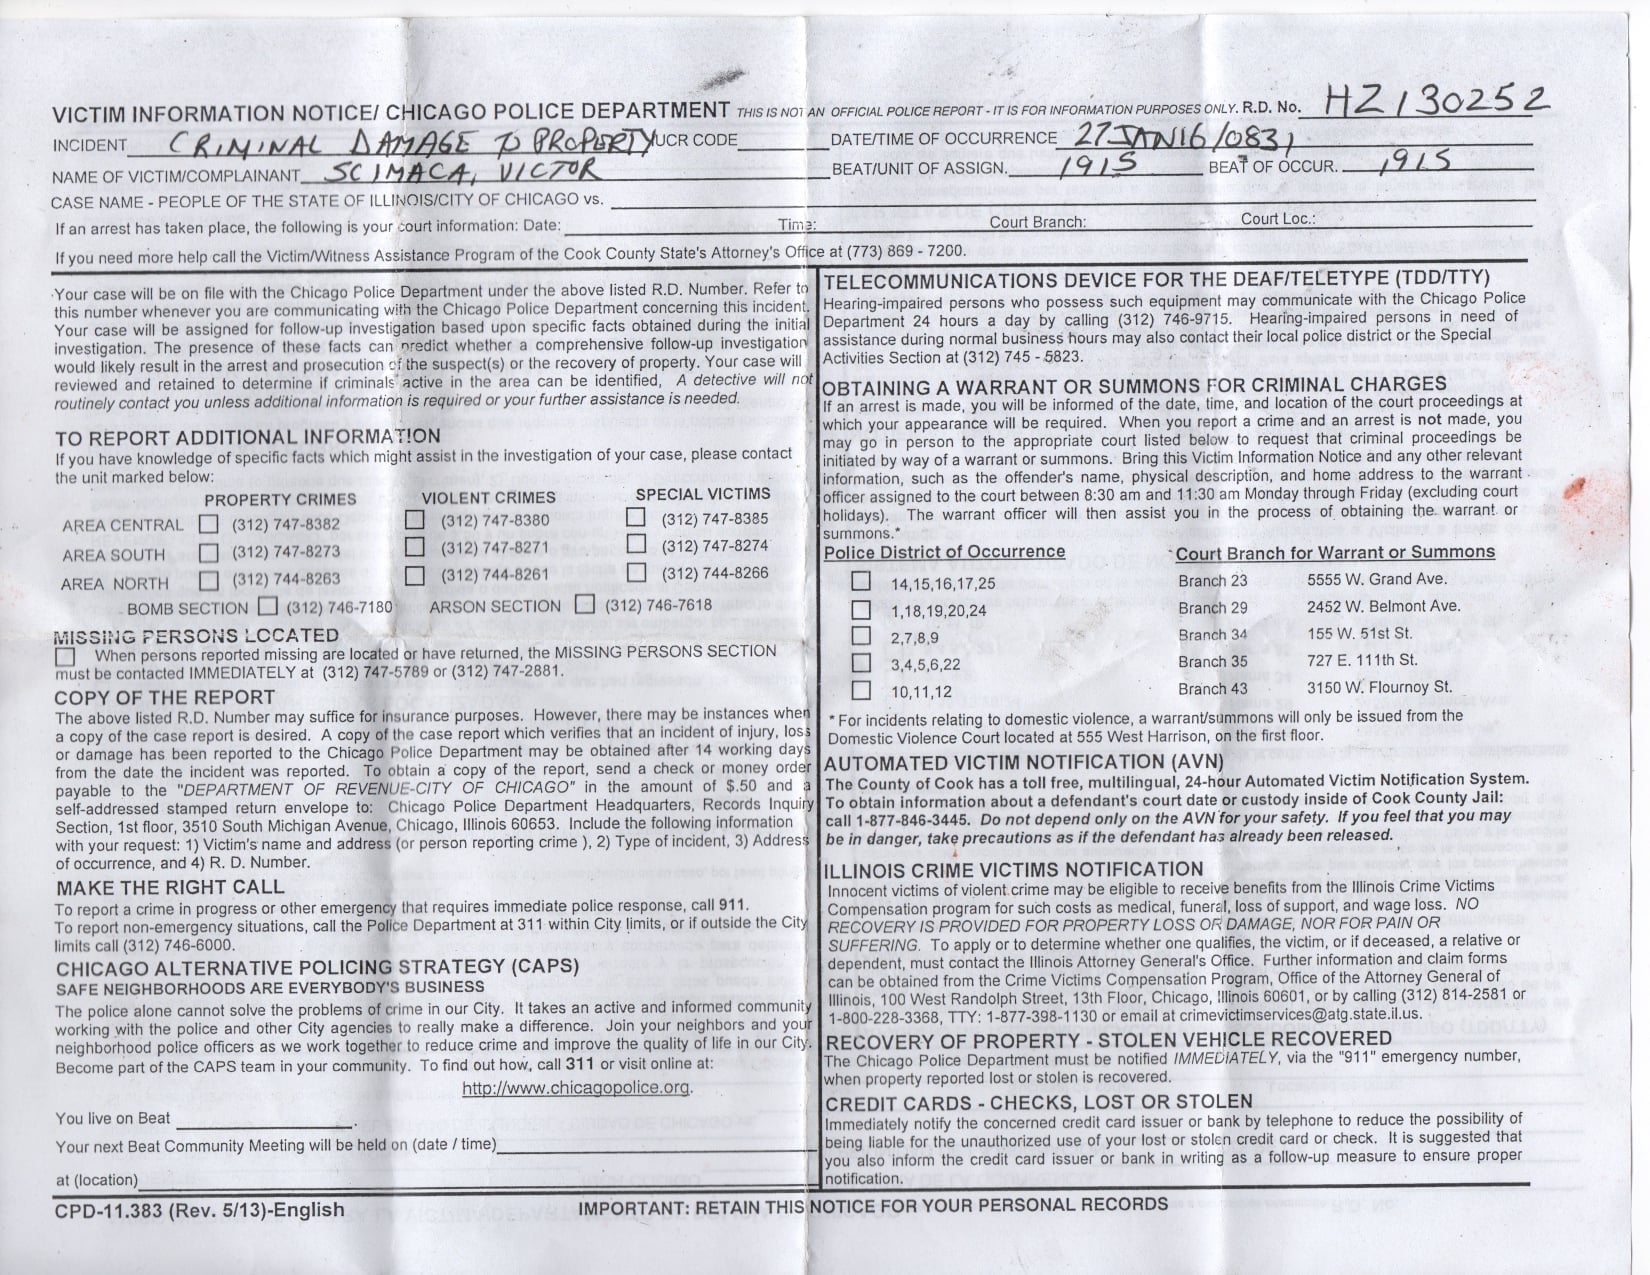 VICTIM INFORMATION NOTICE/ CHICAGO POLICE DEPARTMENT THIS IS NOT AN OFFICIAL POLICE REPORT - IT IS FOR INFORMATION PURPOSES ONLY. R.D. No. HZ130252
INCIDENT CRIMINAL DAMAGE TO PROPERTY UCR CODE DATE/TIME OF OCCURRENCE 27JAN16/0831
NAME OF VICTIM/COMPLAINANT SCIMACA, VICTOR BEAT/UNIT OF ASSIGN. 1915 BEAT OF OCCUR. 1915
CASE NAME - PEOPLE OF THE STATE OF ILLINOIS/CITY OF CHICAGO vs.
If an arrest has taken place, the following is your court information: Date: Time: Court Branch: Court Loc.:
If you need more help call the Victim/Witness Assistance Program of the Cook County State's Attorney's Office at (773) 869 - 7200.
Your case will be on file with the Chicago Police Department under the above listed R.D. Number. Refer to
this number whenever you are communicating with the Chicago Police Department concerning this incident.
Your case will be assigned for follow-up investigation based upon specific facts obtained during the initial
investigation. The presence of these facts can predict whether a comprehensive follow-up investigation
would likely result in the arrest and prosecution of the suspect(s) or the recovery of property. Your case will
reviewed and retained to determine if criminals active in the area can be identified, A detective will not
routinely contact you unless additional information is required or your further assistance is needed.
TO REPORT ADDITIONAL INFORMATION
If you have knowledge of specific facts which might assist in the investigation of your case, please contact
the unit marked below:
PROPERTY CRIMES VIOLENT CRIMES SPECIAL VICTIMS
AREA CENTRAL (312) 747-8382 (312) 747-8380 (312) 747-8385
AREA SOUTH (312) 747-8273 (312) 747-8271 (312) 747-8274
AREA NORTH (312) 744-8263 (312) 744-8261 (312) 744-8266
BOMB SECTION (312) 746-7180 ARSON SECTION (312) 746-7618
MISSING PERSONS LOCATED
When persons reported missing are located or have returned, the MISSING PERSONS SECTION
must be contacted IMMEDIATELY at (312) 747-5789 or (312) 747-2881.
COPY OF THE REPORT
The above listed R.D. Number may suffice for insurance purposes. However, there may be instances when
a copy of the case report is desired. A copy of the case report which verifies that an incident of injury, loss
or damage has been reported to the Chicago Police Department may be obtained after 14 working days
from the date the incident was reported. To obtain a copy of the report, send a check or money order
payable to the "DEPARTMENT OF REVENUE-CITY OF CHICAGO" in the amount of $.50 and a
self-addressed stamped return envelope to: Chicago Police Department Headquarters, Records Inquiry
Section, 1st floor, 3510 South Michigan Avenue, Chicago, Illinois 60653. Include the following information
with your request: 1) Victim's name and address (or person reporting crime ), 2) Type of incident, 3) Address
of occurrence, and 4) R. D. Number.
MAKE THE RIGHT CALL
To report a crime in progress or other emergency that requires immediate police response, call 911.
To report non-emergency situations, call the Police Department at 311 within City limits, or if outside the City
limits call (312) 746-6000.
CHICAGO ALTERNATIVE POLICING STRATEGY (CAPS)
SAFE NEIGHBORHOODS ARE EVERYBODY'S BUSINESS
The police alone cannot solve the problems of crime in our City. It takes an active and informed community
working with the police and other City agencies to really make a difference. Join your neighbors and your
neighborhood police officers as we work together to reduce crime and improve the quality of life in our City.
Become part of the CAPS team in your community. To find out how, call 311 or visit online at:
http://www.chicagopolice.org.
You live on Beat .
Your next Beat Community Meeting will be held on (date / time)
at (location)
TELECOMMUNICATIONS DEVICE FOR THE DEAF/TELETYPE (TDD/TTY)
Hearing-impaired persons who possess such equipment may communicate with the Chicago Police
Department 24 hours a day by calling (312) 746-9715. Hearing-impaired persons in need of
assistance during normal business hours may also contact their local police district or the Special
Activities Section at (312) 745 - 5823.
OBTAINING A WARRANT OR SUMMONS FOR CRIMINAL CHARGES
If an arrest is made, you will be informed of the date, time, and location of the court proceedings at
which your appearance will be required. When you report a crime and an arrest is not made, you
may go in person to the appropriate court listed below to request that criminal proceedings be
initiated by way of a warrant or summons. Bring this Victim Information Notice and any other relevant
information, such as the offender's name, physical description, and home address to the warrant
officer assigned to the court between 8:30 am and 11:30 am Monday through Friday (excluding court
holidays). The warrant officer will then assist you in the process of obtaining the warrant or
summons.*
Police District of Occurrence Court Branch for Warrant or Summons
14,15,16,17,25 Branch 23 5555 W. Grand Ave.
1,18,19,20,24 Branch 29 2452 W. Belmont Ave.
2,7,8,9 Branch 34 155 W. 51st St.
3,4,5,6,22 Branch 35 727 E. 111th St.
10,11,12 Branch 43 3150 W. Flournoy St.
* For incidents relating to domestic violence, a warrant/summons will only be issued from the
Domestic Violence Court located at 555 West Harrison, on the first floor.
AUTOMATED VICTIM NOTIFICATION (AVN)
The County of Cook has a toll free, multilingual, 24-hour Automated Victim Notification System.
To obtain information about a defendant's court date or custody inside of Cook County Jail:
call 1-877-846-3445. Do not depend only on the AVN for your safety. If you feel that you may
be in danger, take precautions as if the defendant has already been released.
ILLINOIS CRIME VICTIMS NOTIFICATION
Innocent victims of violent crime may be eligible to receive benefits from the Illinois Crime Victims
Compensation program for such costs as medical, funeral, loss of support, and wage loss. NO
RECOVERY IS PROVIDED FOR PROPERTY LOSS OR DAMAGE, NOR FOR PAIN OR
SUFFERING. To apply or to determine whether one qualifies, the victim, or if deceased, a relative or
dependent, must contact the Illinois Attorney General's Office. Further information and claim forms
can be obtained from the Crime Victims Compensation Program, Office of the Attorney General of
Illinois, 100 West Randolph Street, 13th Floor, Chicago, Illinois 60601, or by calling (312) 814-2581 or
1-800-228-3368, TTY: 1-877-398-1130 or email at crimevictimservices@atg.state.il.us.
RECOVERY OF PROPERTY - STOLEN VEHICLE RECOVERED
The Chicago Police Department must be notified IMMEDIATELY, via the "911" emergency number,
when property reported lost or stolen is recovered.
CREDIT CARDS - CHECKS, LOST OR STOLEN
Immediately notify the concerned credit card issuer or bank by telephone to reduce the possibility of
being liable for the unauthorized use of your lost or stolen credit card or check. It is suggested that
you also inform the credit card issuer or bank in writing as a follow-up measure to ensure proper
notification.
CPD-11.383 (Rev. 5/13)-English IMPORTANT: RETAIN THIS NOTICE FOR YOUR PERSONAL RECORDS